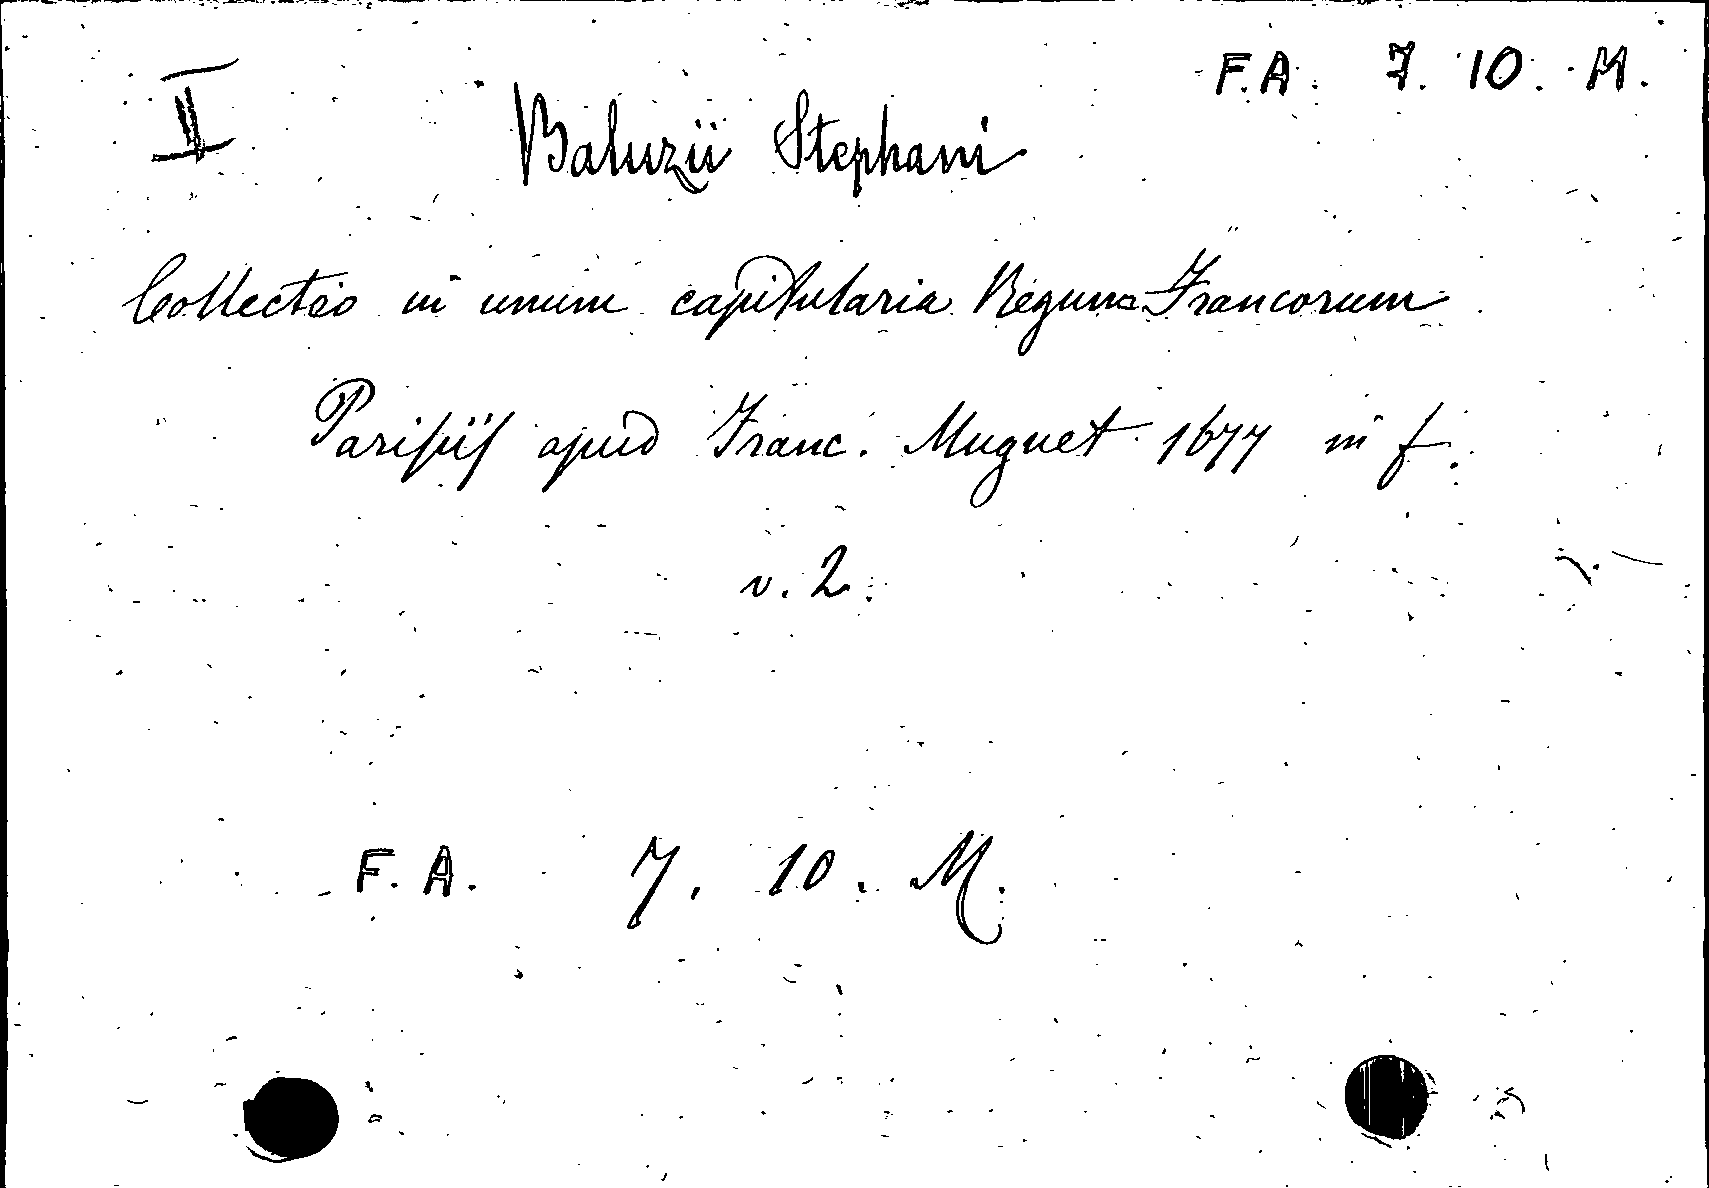 F.A. 7. 10. M.
II
Baluzii Stephani
Collectio in unum capitularia Regum Francorum
Parisiis apud Franc. Muguet 1677 in f.
v. 2.
F. A. 7. 10. M.